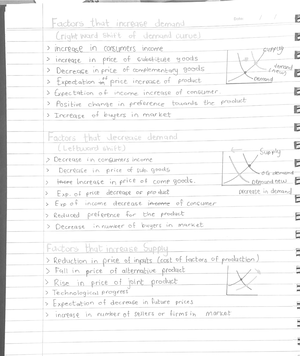 Factors that increase demand
(right ward shift of demand curve)
> increase in consumers income
> increase in price of substitute goods
> Decrease in price of complementary goods
> Expectation of price increase of product
> Expectation of income increase of consumer
> Positive change in preference towards the product
> Increase of buyers in market
supply
demand
Factors that decrease demand
(Leftward shift)
> Decrease in consumers income
> Decrease in price of sub goods
> Increase in price of comp goods.
> Exp of price decrease of product
> Exp of income decrease of consumer
> Reduced preference for the product
> Decrease in number of buyers in market
Supply
old demand
Demand new
decrease in demand
Factors that increase supply
> Reduction in price of inputs (cost of factors of production)
> Fall in price of alternative product
> Rise in price of joint product
> Technological progress
> Expectation of decrease in future prices
> increase in number of sellers or firms in market